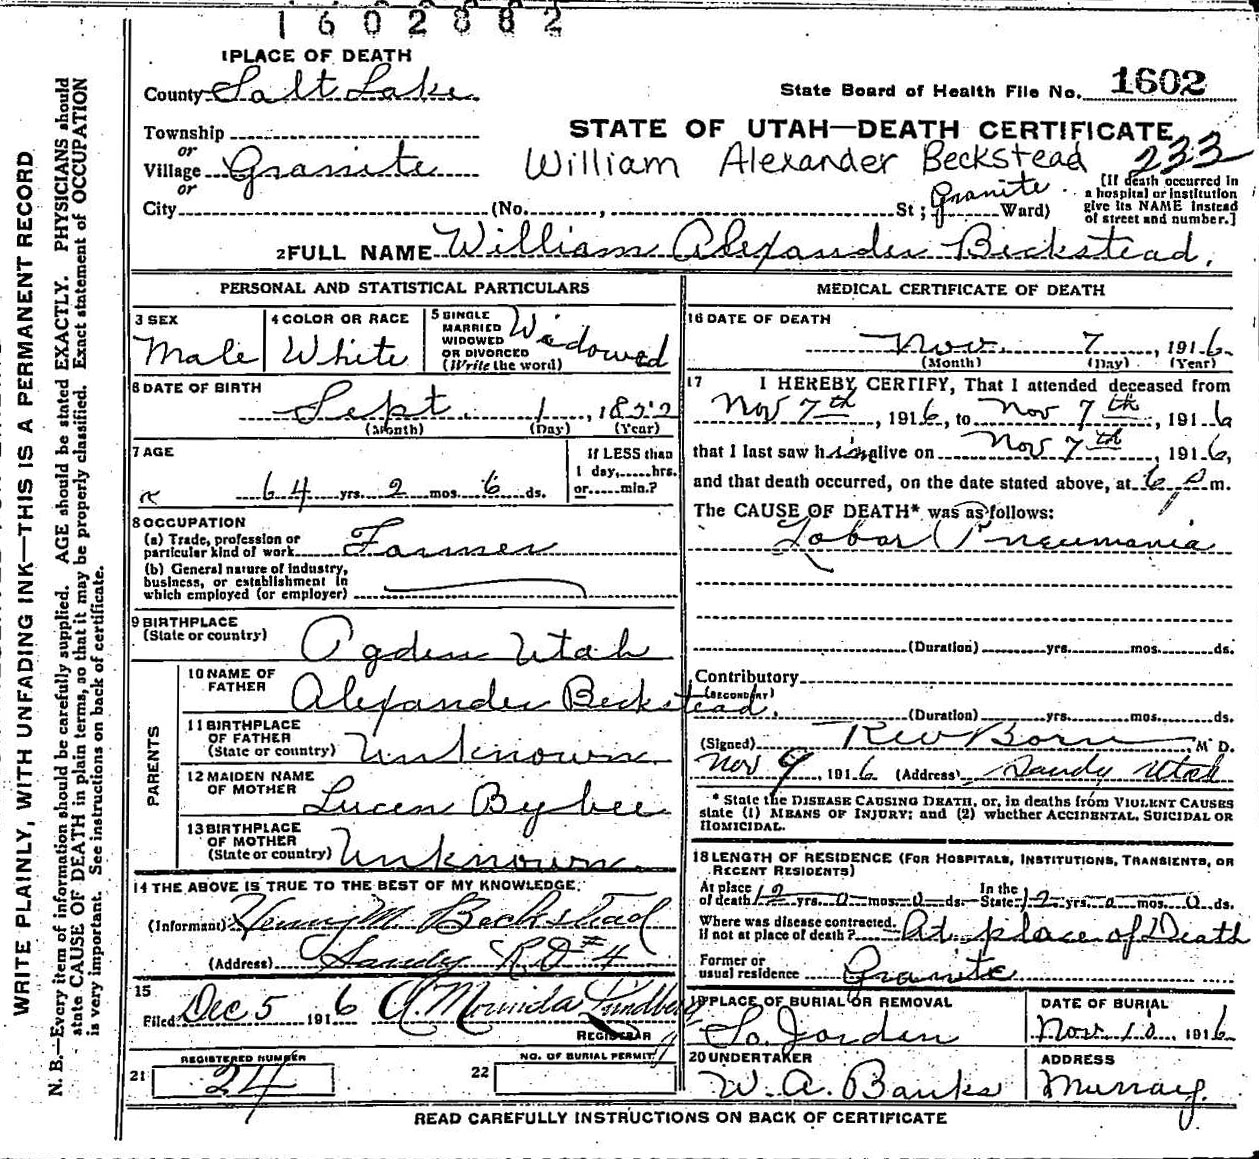 1602882
1 PLACE OF DEATH
County Salt Lake
State Board of Health File No. 1602
Township
or
STATE OF UTAH—DEATH CERTIFICATE
Village Granite
William Alexander Beckstead 233
or
City (No. , St ; Granite Ward)
[If death occurred in
a hospital or institution
give its NAME instead
of street and number.]
2 FULL NAME William Alexander Beckstead.
PERSONAL AND STATISTICAL PARTICULARS
3 SEX
Male
4 COLOR OR RACE
White
5 SINGLE
MARRIED
WIDOWED
OR DIVORCED
(Write the word)
Widowed
6 DATE OF BIRTH
Sept. 1, 1852
(Month) (Day) (Year)
7 AGE
64 yrs. 2 mos. 6 ds.
If LESS than
1 day,......hrs.
or......min.?
8 OCCUPATION
(a) Trade, profession or
particular kind of work Farmer
(b) General nature of industry,
business, or establishment in
which employed (or employer)
9 BIRTHPLACE
(State or country)
Ogden Utah
PARENTS
10 NAME OF
FATHER
Alexander Beckstead.
11 BIRTHPLACE
OF FATHER
(State or country)
Unknown
12 MAIDEN NAME
OF MOTHER
Lucen Bybee
13 BIRTHPLACE
OF MOTHER
(State or country)
Unknown
14 THE ABOVE IS TRUE TO THE BEST OF MY KNOWLEDGE.
(Informant) Henry M. Beckstead
(Address) Sandy RD #4
15
Filed Dec 5 1916
REGISTRAR
REGISTERED NUMBER
21 24
NO. OF BURIAL PERMIT
22
MEDICAL CERTIFICATE OF DEATH
16 DATE OF DEATH
Nov. 7, 1916.
(Month) (Day) (Year)
17 I HEREBY CERTIFY, That I attended deceased from
Nov 7th, 1916, to Nov 7th, 1916
that I last saw him alive on Nov 7th, 1916,
and that death occurred, on the date stated above, at 6 p m.
The CAUSE OF DEATH* was as follows:
Lobar Pneumonia
(Duration) yrs. mos. ds.
Contributory
(SECONDARY)
(Duration) yrs. mos. ds.
(Signed) Born M D.
Nov 9, 1916 (Address) Sandy Utah
* State the DISEASE CAUSING DEATH, or, in deaths from VIOLENT CAUSES
state (1) MEANS OF INJURY; and (2) whether ACCIDENTAL, SUICIDAL OR
HOMICIDAL.
18 LENGTH OF RESIDENCE (FOR HOSPITALS, INSTITUTIONS, TRANSIENTS, OR
RECENT RESIDENTS)
At place
of death 12 yrs. 0 mos. 0 ds.
In the
State 12 yrs. 0 mos. 0 ds.
Where was disease contracted,
if not at place of death? At place of Death
Former or
usual residence Granite
19 PLACE OF BURIAL OR REMOVAL
So. Jordan
DATE OF BURIAL
Nov 10, 1916
20 UNDERTAKER
W. A. Banks
ADDRESS
Murray.
READ CAREFULLY INSTRUCTIONS ON BACK OF CERTIFICATE
WRITE PLAINLY, WITH UNFADING INK—THIS IS A PERMANENT RECORD
N. B.—Every item of information should be carefully supplied. AGE should be stated EXACTLY. PHYSICIANS should
state CAUSE OF DEATH in plain terms, so that it may be properly classified. Exact statement of OCCUPATION
is very important. See instructions on back of certificate.